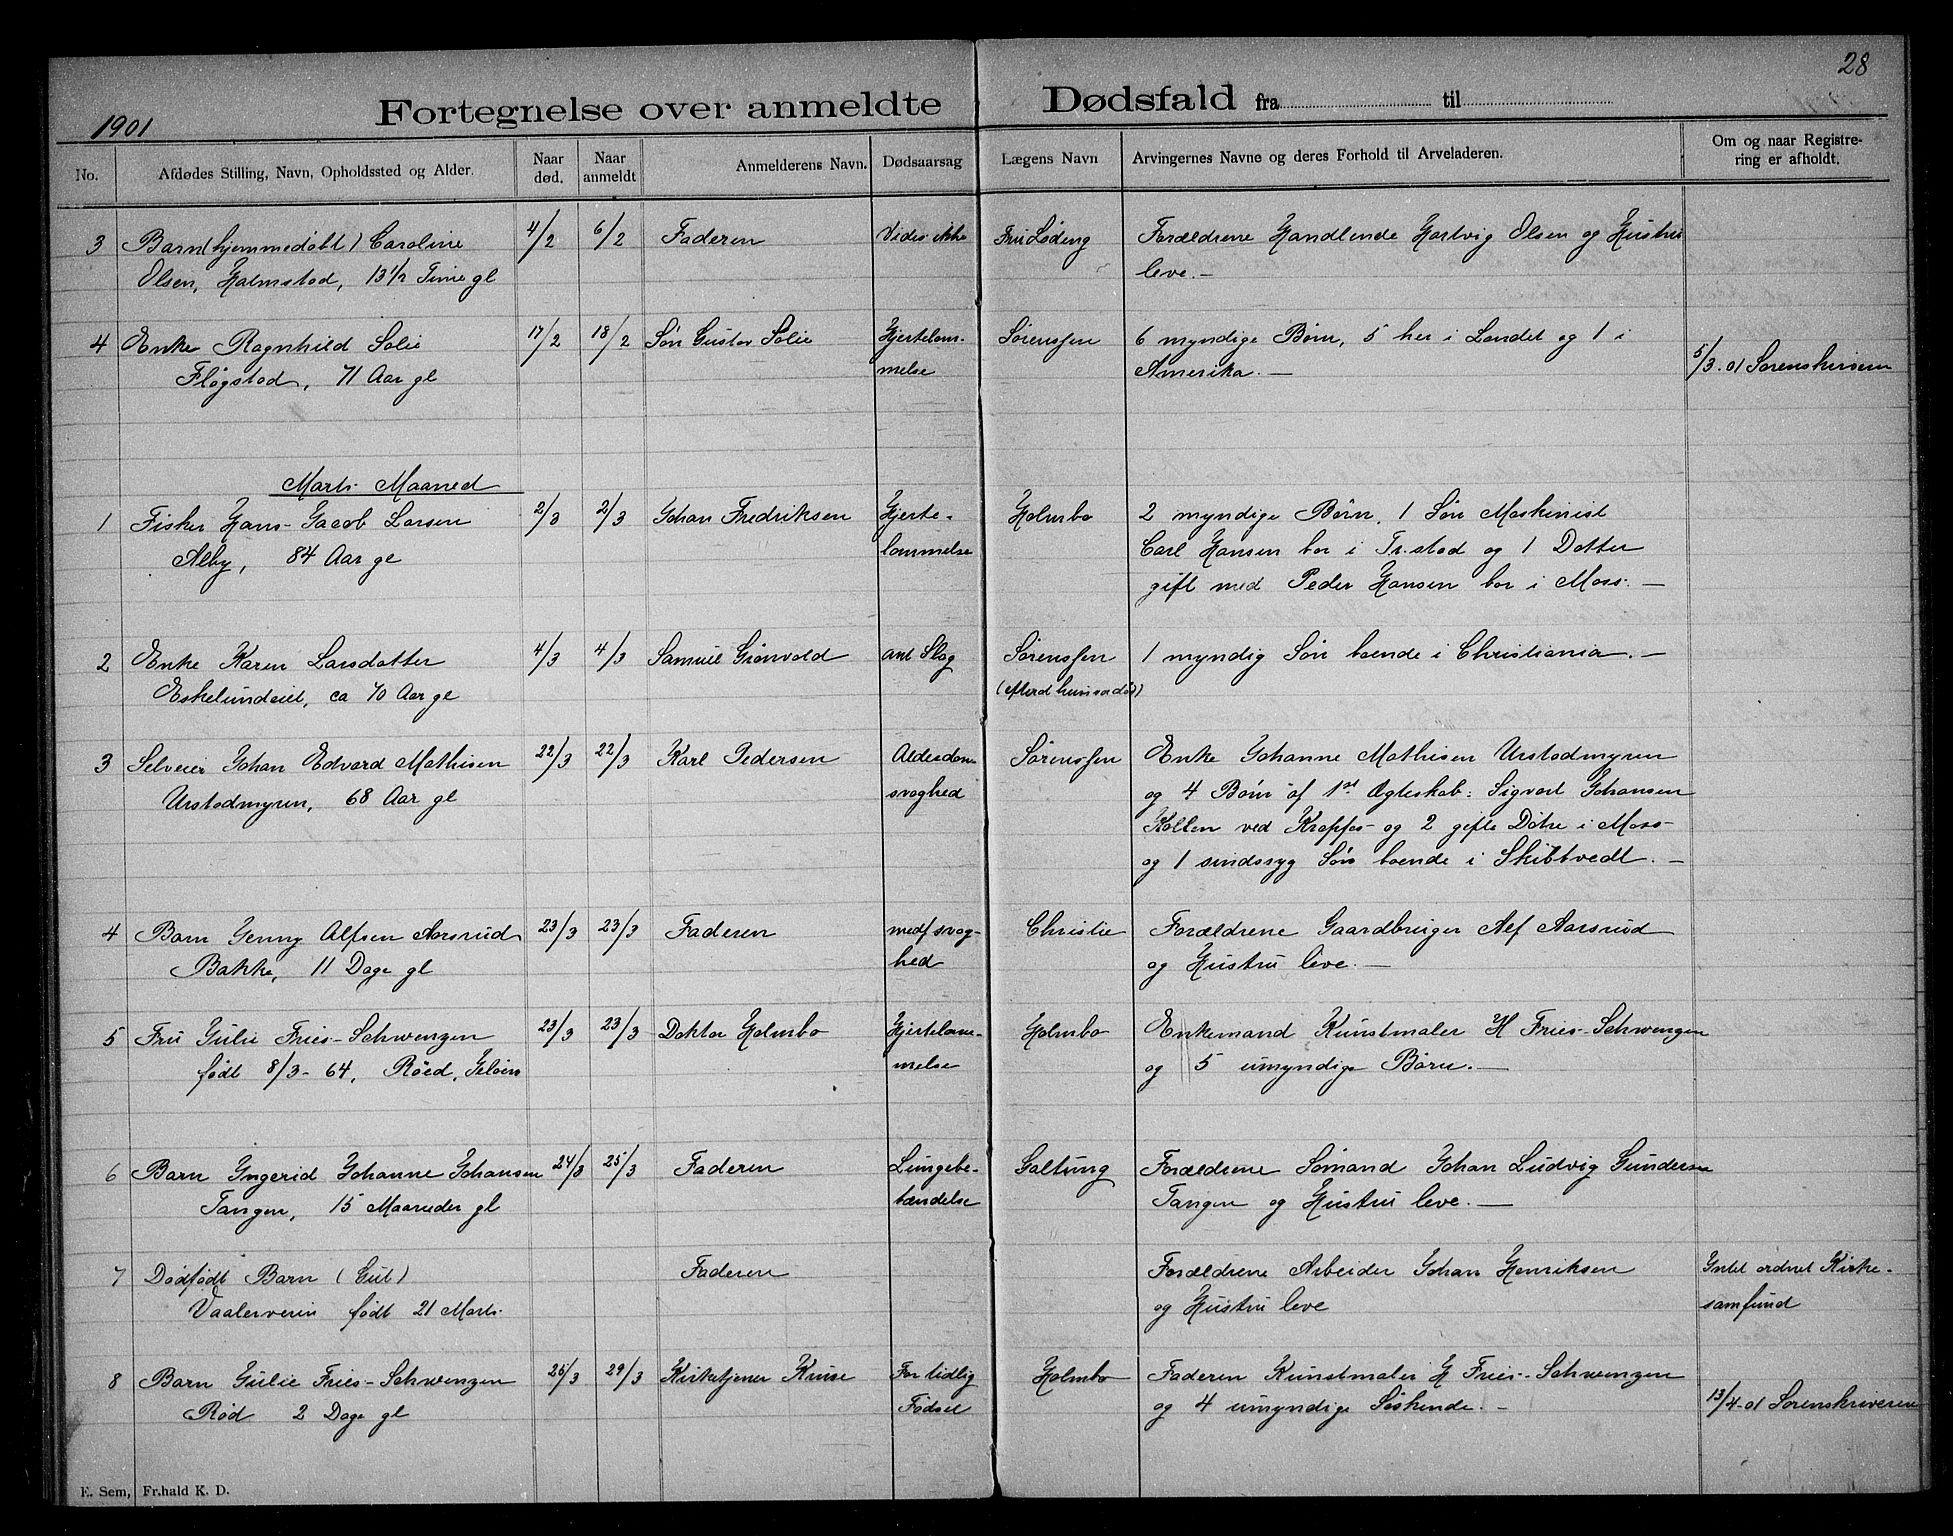 28
1901
Fortegnelse over anmeldte Dødsfald fra til
No.
Afdødes Stilling, Navn, Opholdssted og Alder.
Naar død.
Naar anmeldt
Anmelderens Navn.
Dødsaarsag
Lægens Navn
Arvingernes Navne og deres Forhold til Arveladeren.
Om og naar Registrering er afholdt.
3 Barn (hjemmedøbt) Caroline 4/2 6/2 Faderen Vides ikke Fru Løding Forældrene Handlende Hartvig Olsen og Hustru
Olsen, Halmstad, 13 1/2 Time gl leve. —
4 Enke Ragnhild Solie 17/2 18/2 Søn Gustav Solie Hjertelam- Sørenssen 6 myndige Børn, 5 her i Landet og 1 i
Fløgstad, 71 Aar gl melse Amerika. — 5/3-01 Sorenskriveren
Marts Maaned
1 Fisker Hans-Jacob Larsen 2/3 2/3 Johan Fredriksen Hjerte- Holmbo 2 myndige Børn, 1 Søn Maskinist
Alby, 84 Aar gl lammelse Carl Hansen bor i Fr.stad og 1 Datter
gift med Peder Hansen bor i Moss. —
2 Enke Karen Larsdatter 4/3 4/3 Samuel Grønvold ant Slag Sørenssen 1 myndig Søn boende i Christiania. —
Eskelundeiet, ca 70 Aar gl (efterat hun var død)
3 Selveier Johan Edvard Mathisen 22/3 22/3 Karl Pedersen Alderdoms Sørenssen Enke Johanne Mathisen Urstadmyren
Urstadmyren, 68 Aar gl svaghed og 4 Børn af 1st Ægteskab: Sigvart Johansen
Kollen ved Krapfos og 2 gifte Døtre i Moss
og 1 sindssyg Søn boende i Skibtvedt. —
4 Barn Jenny Alfsen Aarsrud 23/3 23/3 Faderen medf svag- Christie Forældrene Gaardbruger Alf Aarsrud
Bakke, 11 Dage gl hed og Hustru leve. —
5 Fru Julie Fries-Schwenzen 23/3 23/3 Doktor Holmbo Hjertelam- Holmbo Enkemand Kunstmaler H Fries-Schwenzen
født 8/3-64, Røed, Jeløen melse og 5 umyndige Børn. —
6 Barn Yngerid Johanne Johansen 24/3 25/3 Faderen Lungebe- Galtung Forældrene Sømand Johan Ludvig Gundersen
Tangen, 15 Maaneder gl tændelse Tangen og Hustru leve. —
7 Dødfødt Barn (Gut) Faderen Forældrene Arbeider Johan Henriksen Intet ordnet Kirke-
Vaalerveien født 21 Marts og Hustru leve samfund
8 Barn Julie Fries-Schwenzen 25/3 29/3 Kirketjener Kruse For tidlig Holmbo Faderen Kunstmaler H Fries-Schwenzen
Rød 2 Dage gl Fødsel og 4 umyndige Søskende. — 13/4-01 Sorenskriveren
E. Sem, Fr.hald K. D.